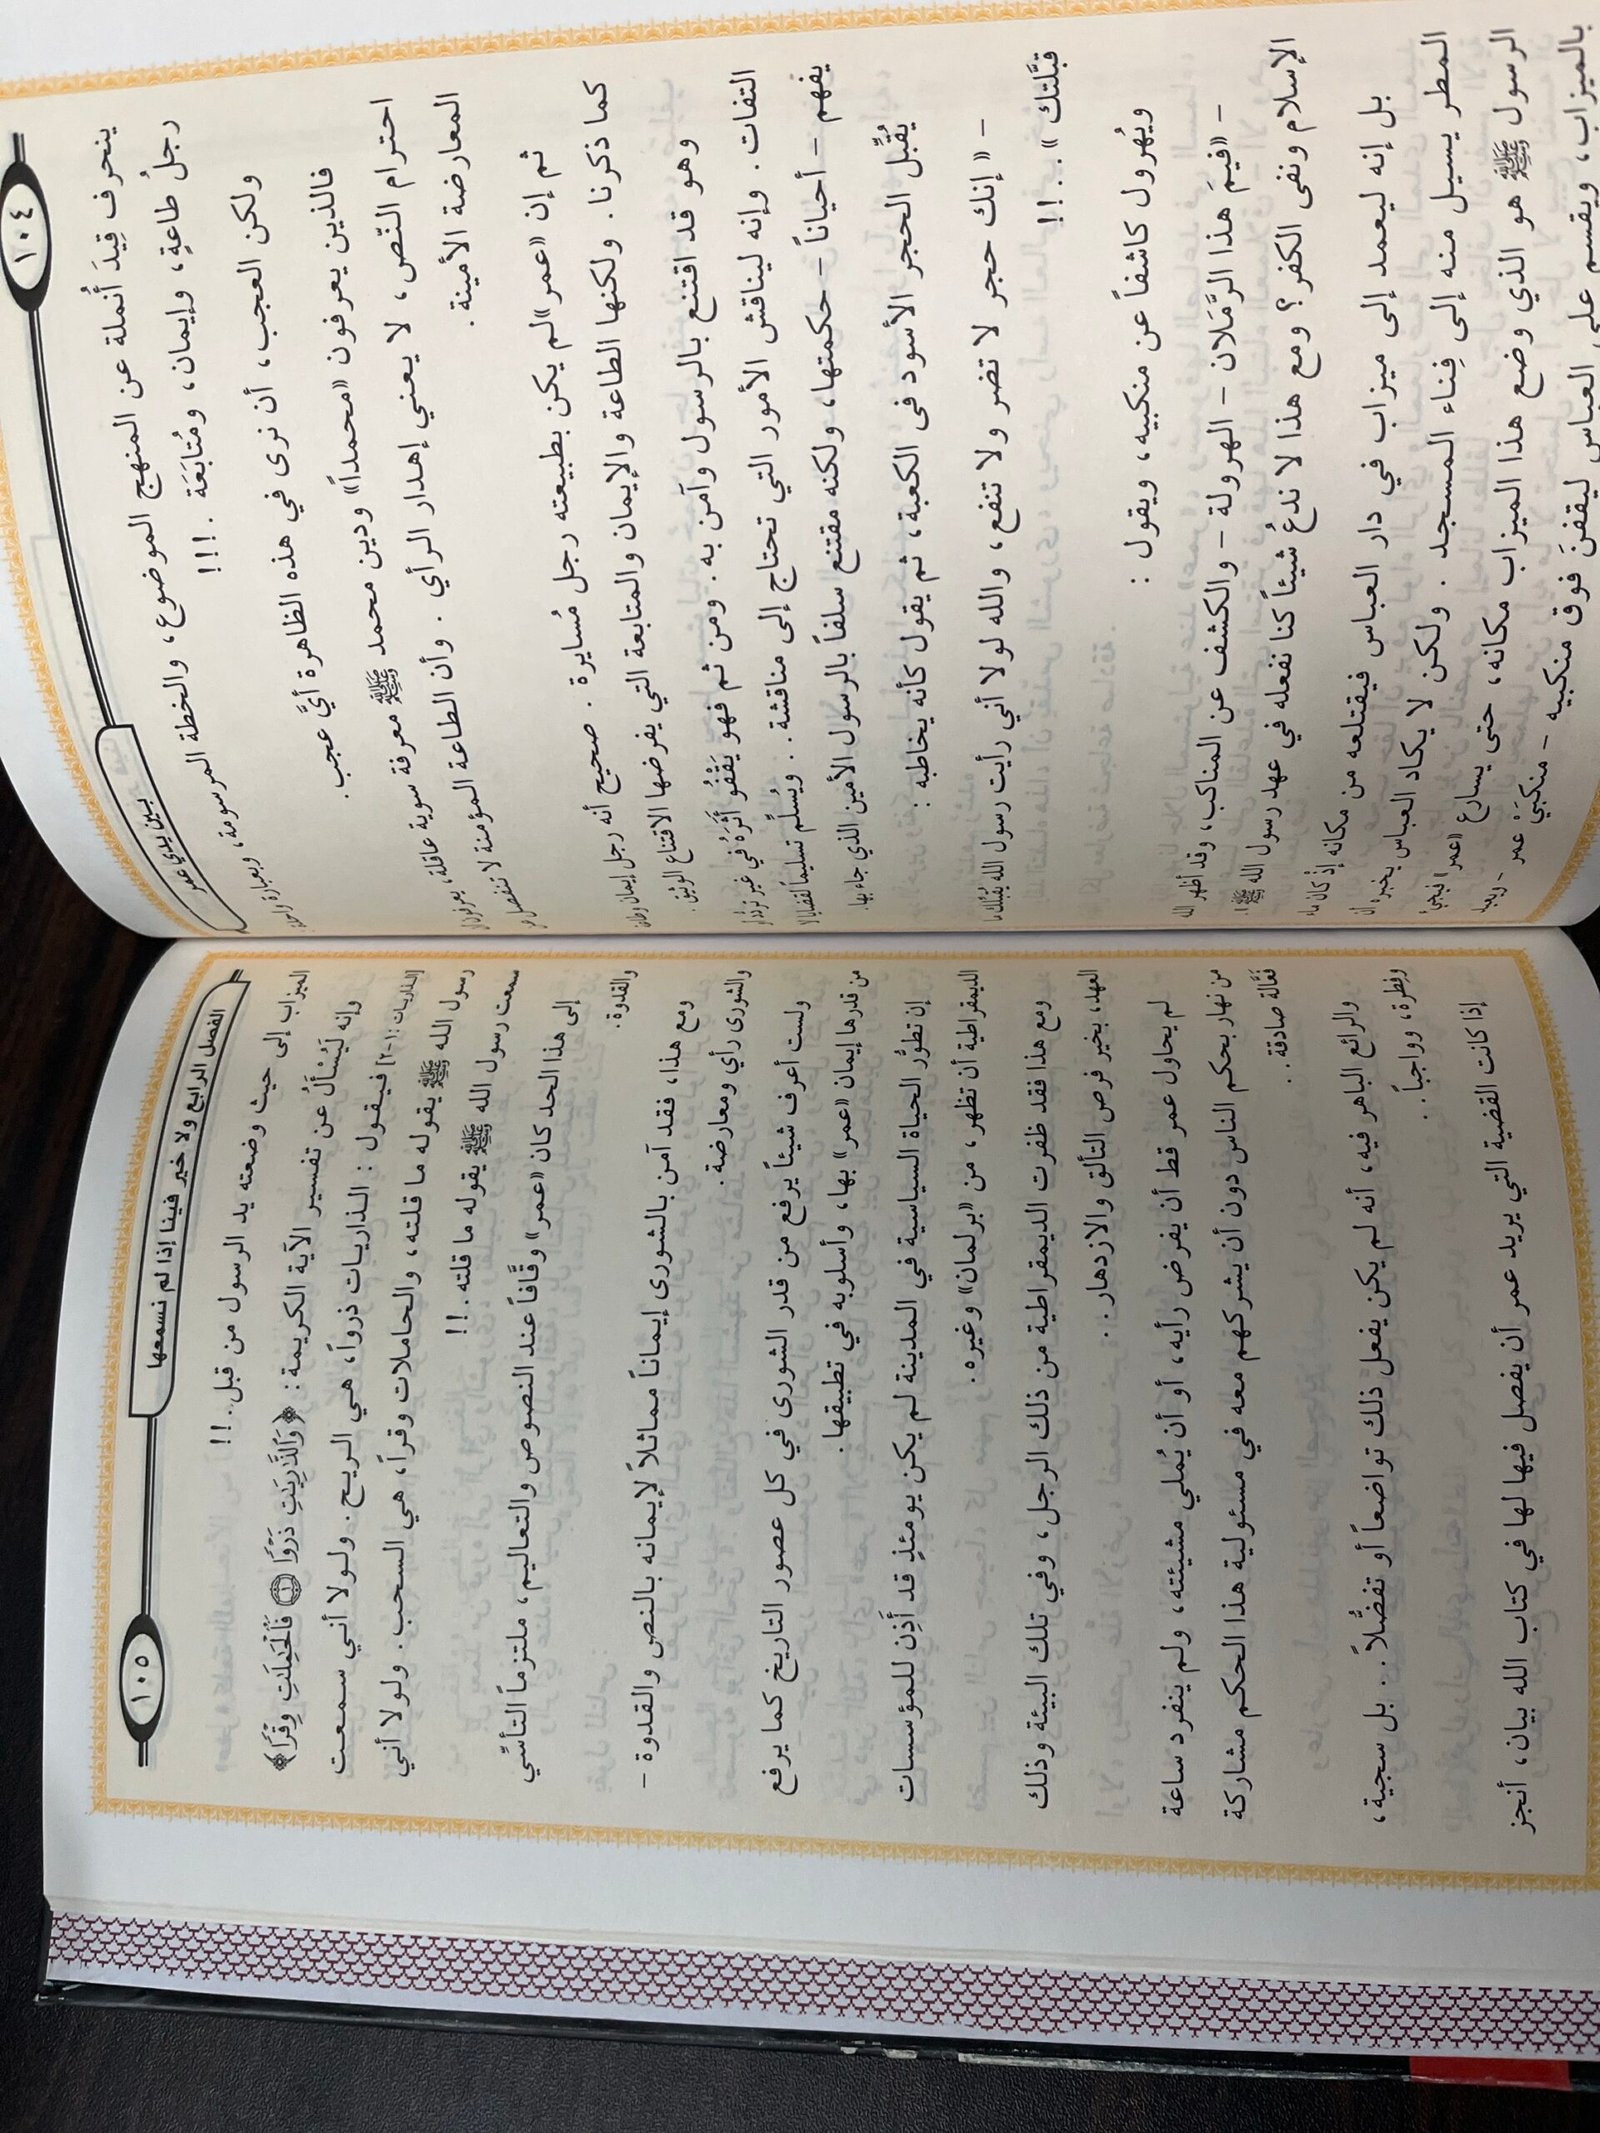 ١٠٤
بين يدي عمر
ينحرف قِيدَ أُنملة عن المنهج الموضوع، والخطة المرسومة، وبعبارة واحدة
رجلُ طاعةٍ، وإيمان، ومُتابَعَة .!!!
ولكن العجب، أن نرى في هذه الظاهرة أيَّ عجب.
فالذين يعرفون «محمداً» ودين محمد ﷺ معرفة سوية عاقلة، يعرفون أن
احترام النّص، لا يعني إهدار الرأي . وأن الطاعة المؤمنة لا تنفصل عن
المعارضة الأمينة.
ثم إن «عمر» لم يكن بطبيعته رجل مُسايرة . صحيح أنه رجل إيمان وطاعة
كما ذكرنا . ولكنها الطاعة والإيمان والمتابعة التي يفرضها الاقتناع الوثيق.
وهو قد اقتنع بالرسول وآمن به . ومن ثم فهو يَقْفُو أثَرَهُ في غير تردُّد أو
التفات . وإنه ليناقش الأمور التي تحتاج إلى مناقشة . . ويُسلِّم تسليماً لقضايا لا
يفهم - أحياناً - حكمتها، ولكنه مقتنع سلفاً بالرسول الأمين الذي جاء بها.
يُقبِّل الحجر الأسود فى الكعبة، ثم يقول كأنه يخاطبه :
- « إنك حجر لا تضر ولا تنفع، والله لولا أني رأيت رسول الله يُقبِّلك ما
قبَّلتك » . . !!
ويُهرول كاشفاً عن منكبيه، ويقول :
- «فيمَ هذا الرَّمَلان - الهرولة - والكشف عن المناكب، وقد أظهر الله
الإسلام ونفى الكفر؟ ومع هذا لا ندعُ شيئاً كنا نفعله في عهد رسول الله ﷺ !
بل إنه ليعمد إلى ميزاب في دار العباس فيقتلعه من مكانه إذْ كان ماء
المطر يسيل منه إلى فِناء المسجد . ولكن لا يكاد العباس يخبره أن
الرسول ﷺ هو الذي وضع هذا الميزاب مكانه، حتى يسارع «عمر» فيجيئ
بالميزاب، ويقسم على العباس ليقفنَ فوق منكبيه - منكبَيْ عمر - ويعيد
١٠٥
الفصل الرابع ولا خير فينا إذا لم نسمعها
الميزاب إلى حيث وضعته يد الرسول من قبل . . !!
وإنه ليُسألُ عن تفسير الآية الكريمة : ﴿وَٱلذَّٰرِيَٰتِ ذَرْوًا ۝١ فَٱلْحَٰمِلَٰتِ وِقْرًا﴾
[الذاريات: ١-٢] فيقول : الذاريات ذرواً، هي الريح . ولولا أني سمعت
رسول الله ﷺ يقوله ما قلته، والحاملات وقراً، هي السحب . ولولا أني
سمعت رسول الله ﷺ يقوله ما قلته . !!
إلى هذا الحد كان «عمر» وقَّافاً عند النصوص والتعاليم، ملتزماً التأسِّي
والقدوة.
ومع هذا، فقد آمن بالشورى إيماناً مماثلاً لإيمانه بالنص والقدوة -
والشورى رأي ومعارضة.
ولست أعرف شيئاً يرفع من قدر الشورى في كل عصور التاريخ كما يرفع
من قدرها إيمان «عمر» بها، وأسلوبه في تطبيقها.
إن تطوُّر الحياة السياسية في المدينة لم يكن يومئذٍ قد أَذِن للمؤسسات
الديمقراطية أن تظهر، من «برلمان» وغيره.
ومع هذا فقد ظفرت الديمقراطية من ذلك الرجل، وفي تلك البيئة وذلك
العهد، بخير فرص التألق والازدهار . .
لم يحاول عمر قط أن يفرض رأيه، أو أن يُملي مشيئته، ولم ينفرد ساعة
من نهار بحكم الناس دون أن يشركهم معه في مسئولية هذا الحكم مشاركة
فَعَّالة صادقة . .
والرائع الباهر فيه، أنه لم يكن يفعل ذلك تواضعاً أو تفضُّلاً . . بل سجية،
وفطرة، وواجباً . .
إذا كانت القضية التي يريد عمر أن يفصل فيها لها في كتاب الله بيان، أنجز